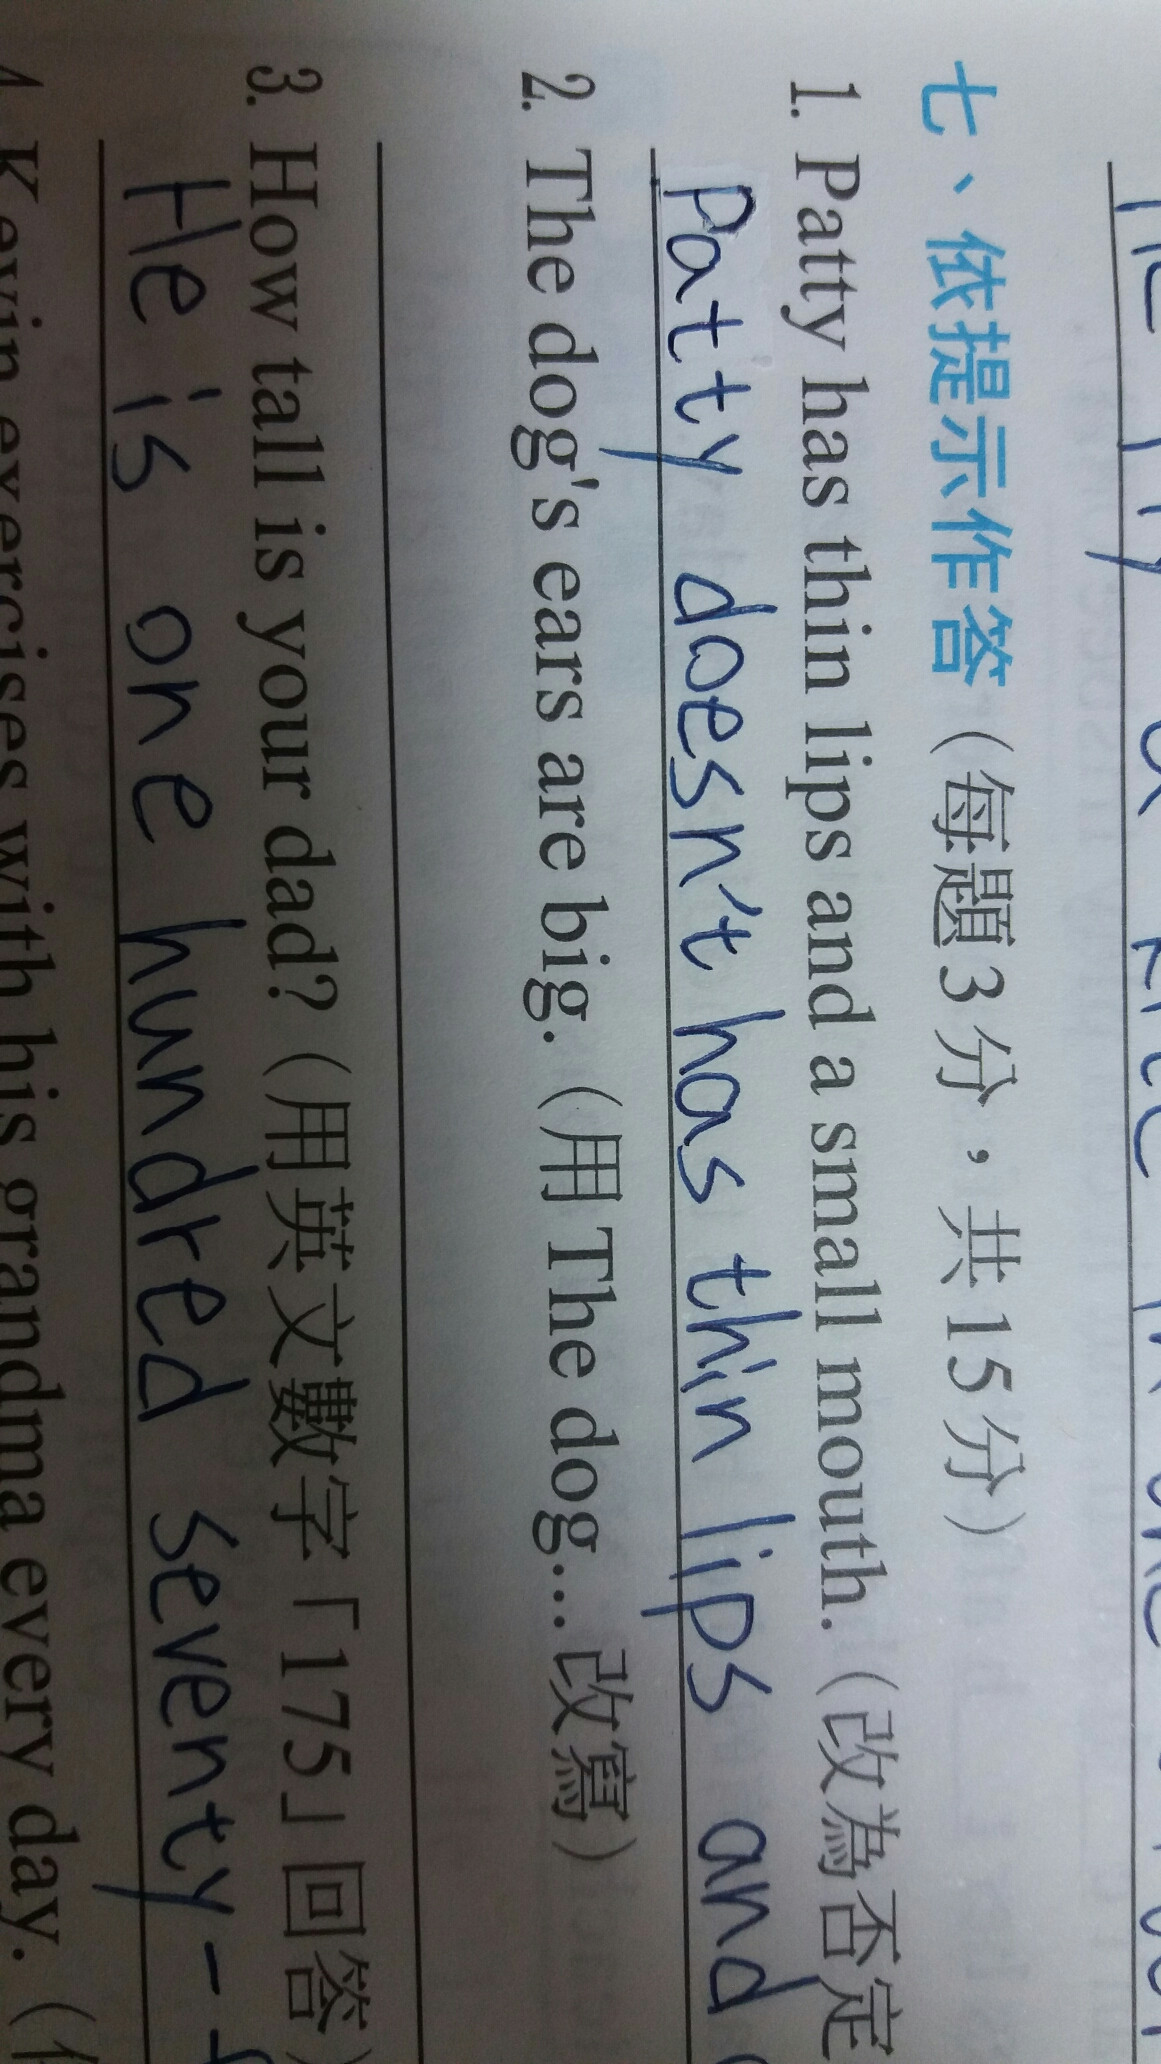 七、依提示作答（每題3分，共15分）
1. Patty has thin lips and a small mouth.（改為否定
Patty doesn't has thin lips and
2. The dog's ears are big.（用 The dog…改寫）
3. How tall is your dad?（用英文數字「175」回答）
He is one hundred seventy-f
4. Kevin exercises with his grandma every day.（